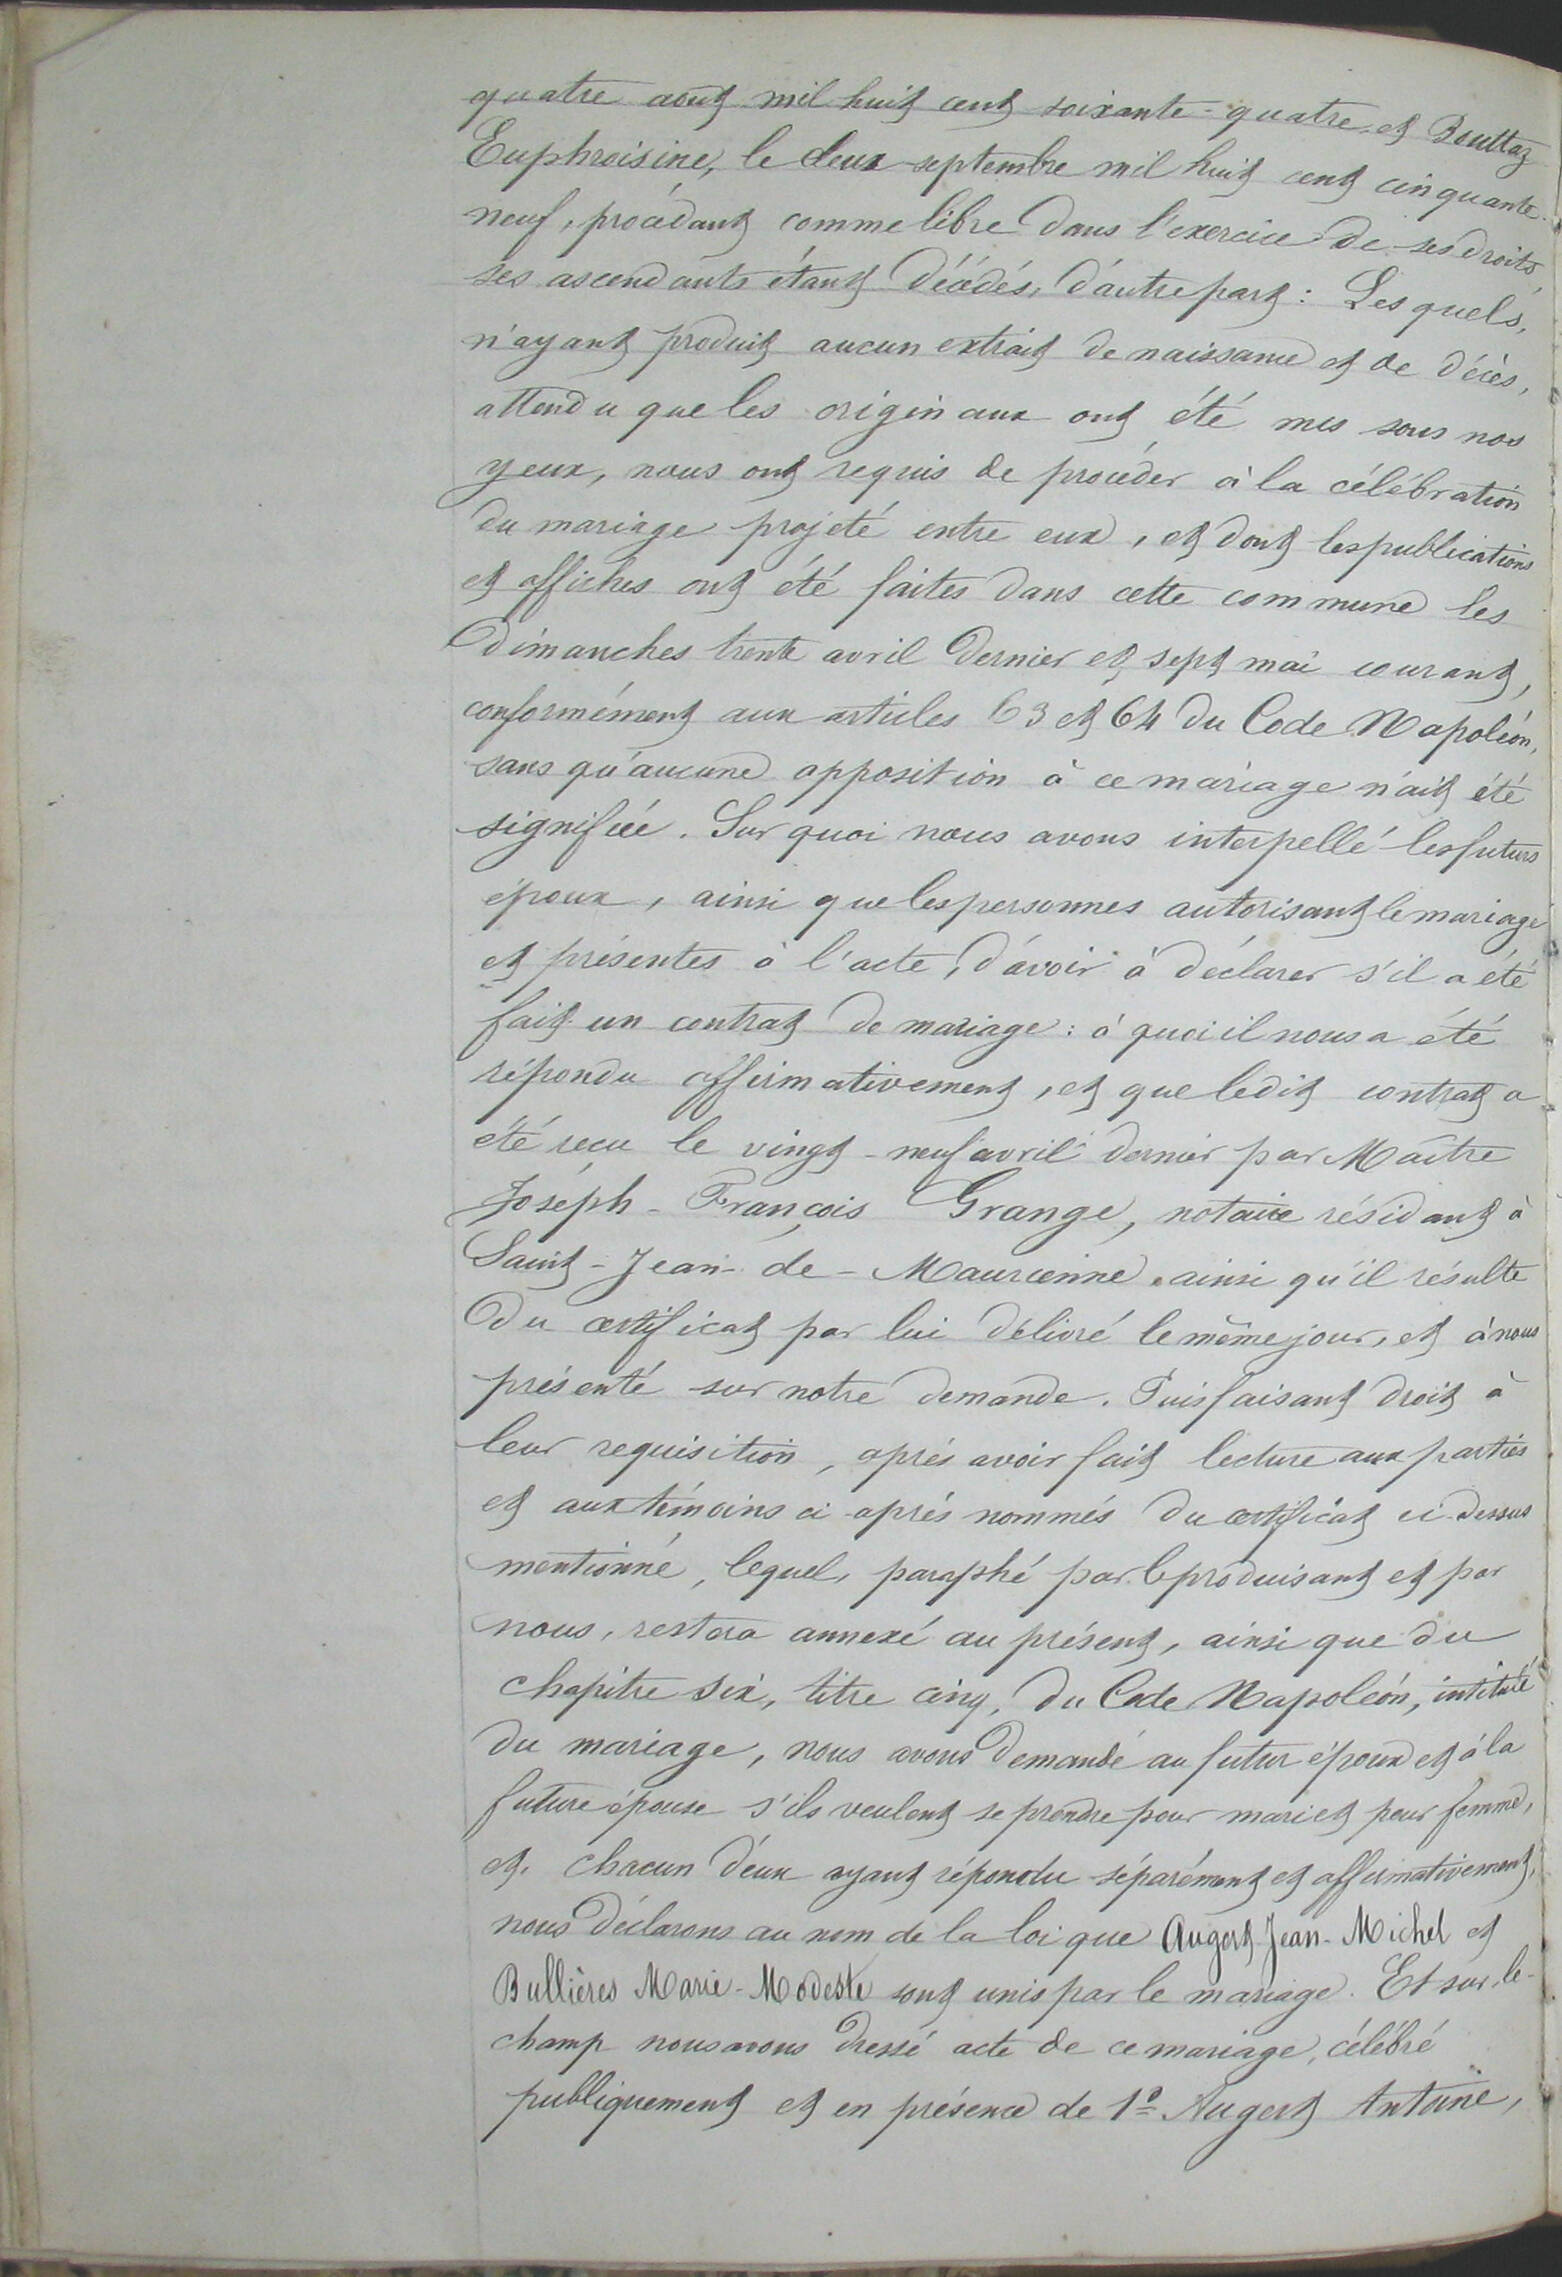 quatre août mil huit cent soixante-quatre, et Bouttaz
Euphroisine, le deux septembre mil huit cent cinquante-
neuf, procédant comme libre dans l'exercice de ses droits,
ses ascendants étant décédés, d'autre part : Lesquels,
n'ayant produit aucun extrait de naissance et de décès,
attendu que les originaux ont été mis sous nos
yeux, nous ont requis de procéder à la célébration
du mariage projeté entre eux, et dont les publications
et affiches ont été faites dans cette commune les
Dimanches trente avril dernier et sept mai courant,
conformément aux articles 63 et 64 du Code Napoléon,
sans qu'aucune opposition à ce mariage n'ait été
signifiée. Sur quoi nous avons interpellé les futurs
époux, ainsi que les personnes autorisant le mariage
et présentes à l'acte, d'avoir à déclarer s'il a été
fait un contrat de mariage : à quoi il nous a été
répondu affirmativement, et que ledit contrat a
été reçu le vingt-neuf avril dernier par Maître
Joseph-François Grange, notaire résidant à
Saint-Jean-de-Maurienne, ainsi qu'il résulte
du certificat par lui délivré le même jour, et à nous
présenté sur notre demande. Puis faisant droit à
leur requisition, après avoir fait lecture aux parties
et aux témoins ci-après nommés du certificat ci-dessus
mentionné, lequel, paraphé par le produisant et par
nous, restera annexé au présent, ainsi que du
chapitre six, titre cinq, du Code Napoléon, intitulé
du mariage, nous avons demandé au futur époux et à la
future épouse s'ils veulent se prendre pour mari et pour femme,
et chacun d'eux ayant répondu séparément et affirmativement,
nous déclarons au nom de la loi que Augert Jean-Michel et
Bullières Marie-Modeste sont unis par le mariage. Et sur-le-
champ nous avons dressé acte de ce mariage, célébré
publiquement et en présence de 1º Augert Antoine,